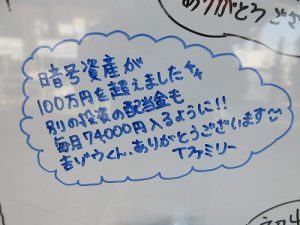 ありがとうご
暗号資産が
100万円を超えました
別の投資の配当金も
毎月74,000円入るように!!
吉ゾウくん、ありがとうございます
Tファミリー